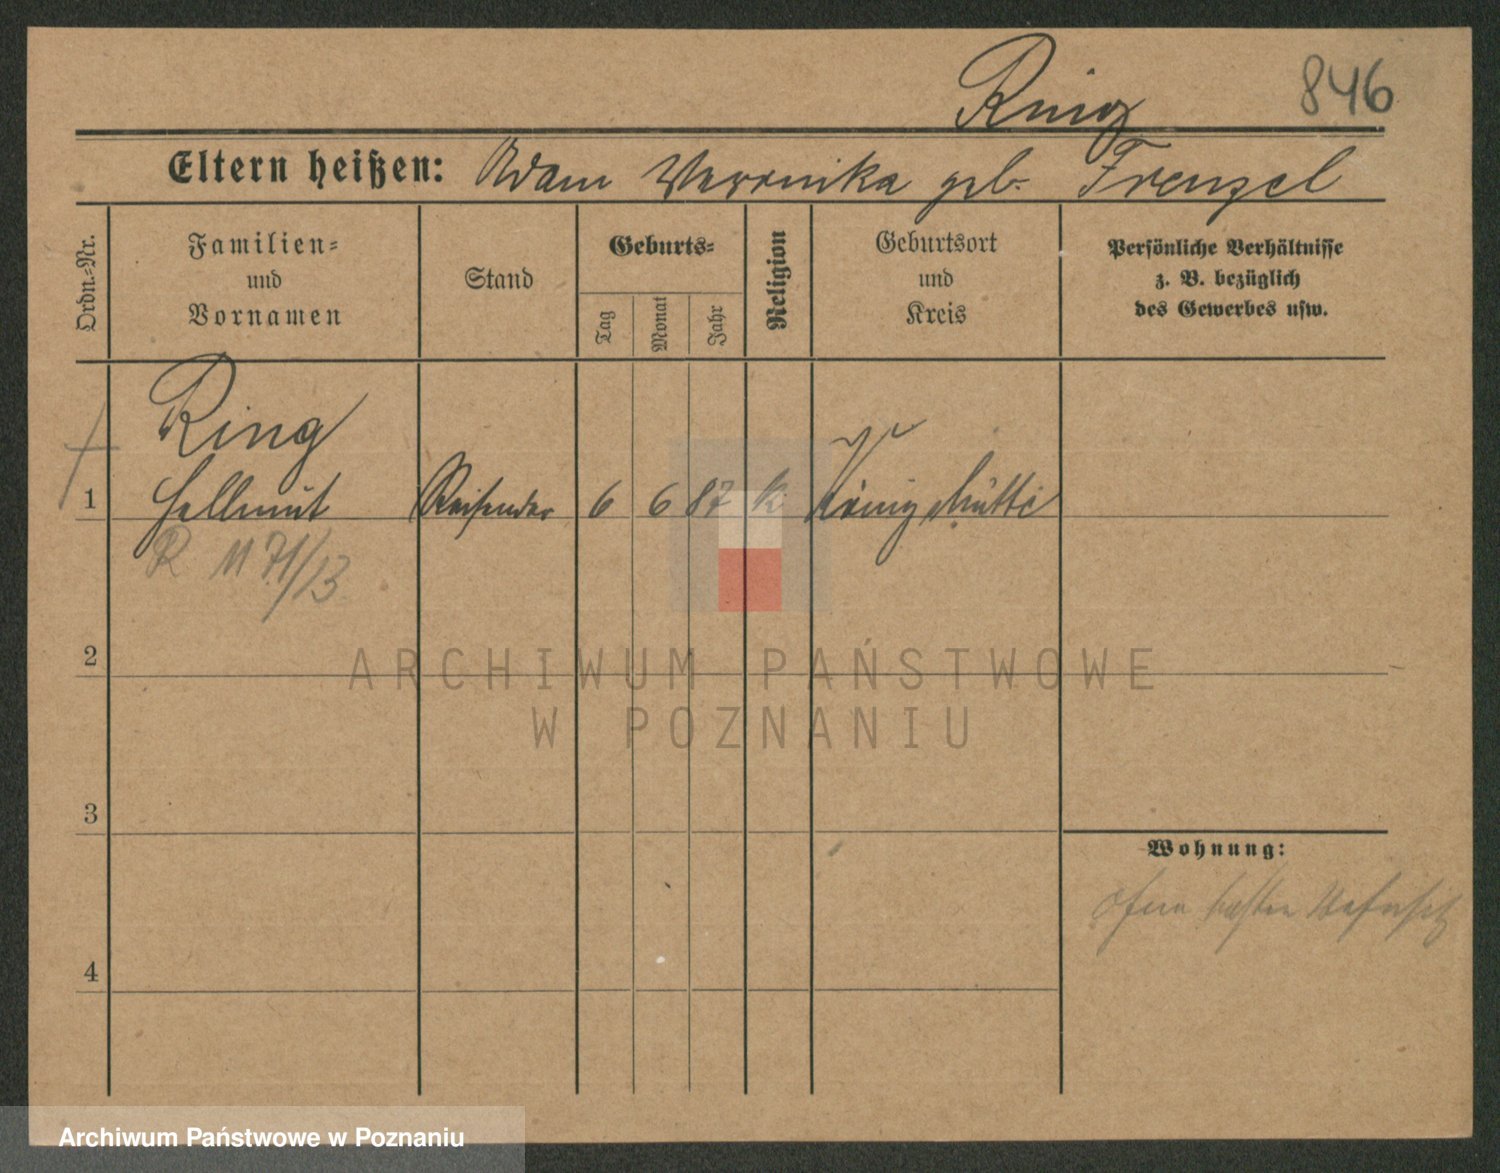 846
Ring
Eltern heißen: Adam Veronika geb. Frenzel
Ordn.=Nr.
Familien=
und
Vornamen
Stand
Geburts=
Tag
Monat
Jahr
Religion
Geburtsort
und
Kreis
Persönliche Verhältnisse
z. B. bezüglich
des Gewerbes usw.
Ring
1 Hellmut Reisender 6 6 87 k. Königshütte
R 11 71/13
2
3
4
Wohnung:
ohne festen Wohnsitz
ARCHIWUM PAŃSTWOWE
W POZNANIU
Archiwum Państwowe w Poznaniu